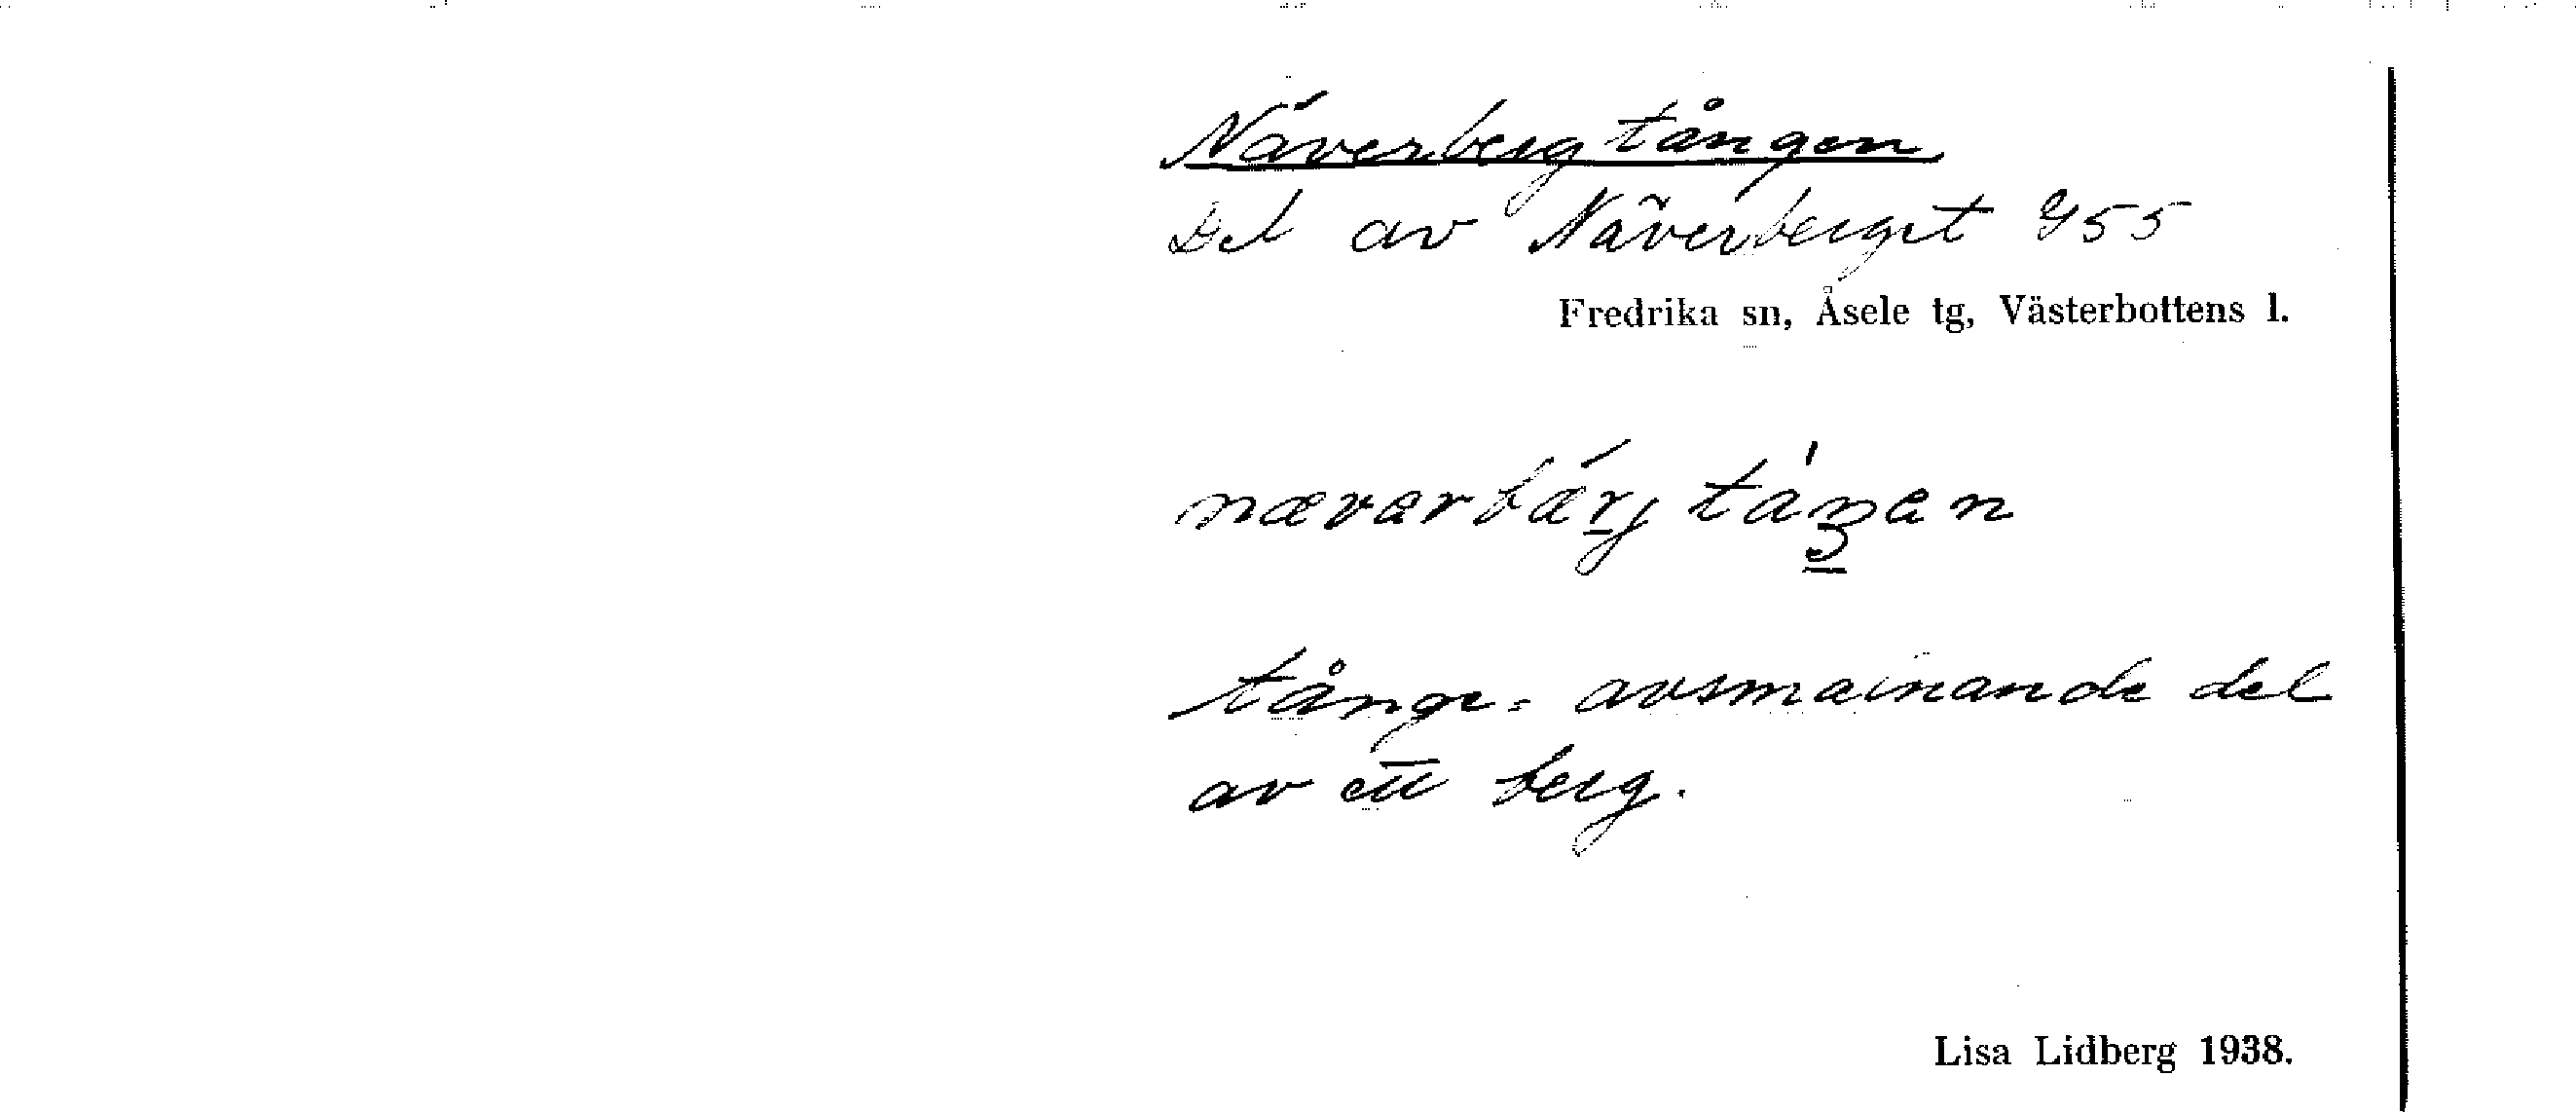 Näverbergtången
Del av Näverberget 955
Fredrika sn, Åsele tg, Västerbottens l.
næverbærj táŋen
tånge = avsmalnande del
av ett berg.
Lisa Lidberg 1938.